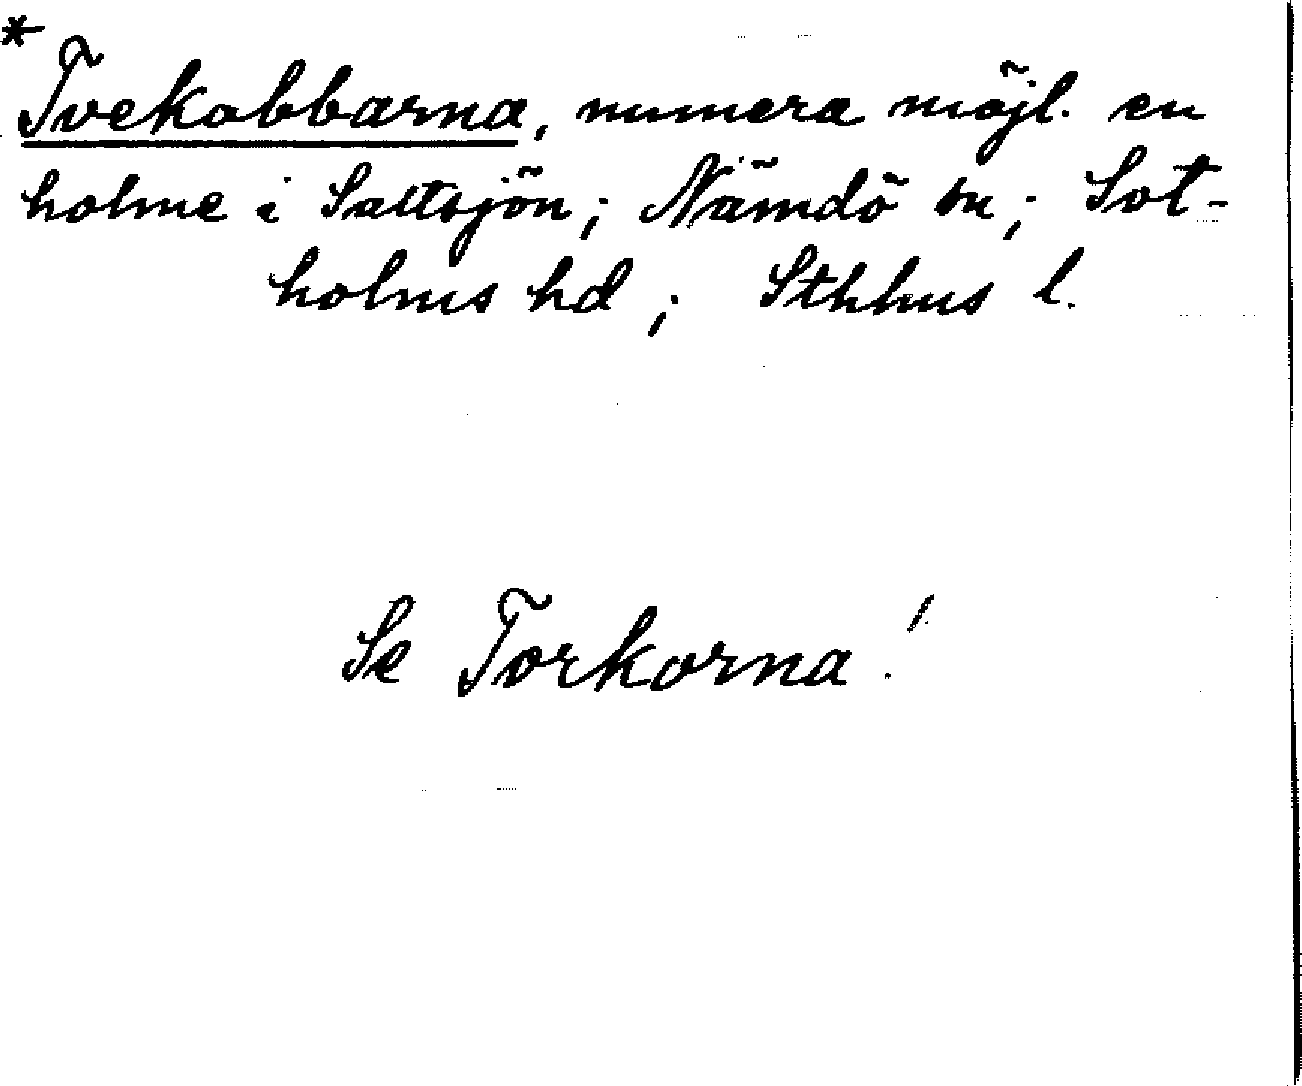 *
Tvekobbarna, numera möjl. en
holme i Saltsjön; Nämdö sn; Sot-
holms hd; Sthlms l.
Se Torkorna!